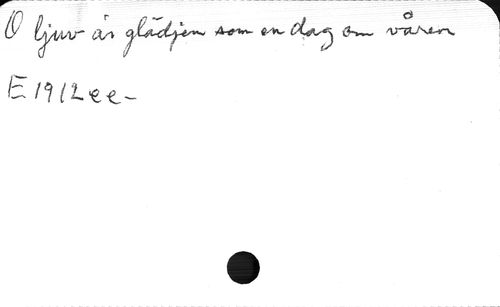 O ljuv är glädjen som en dag om våren
E 1912 ee-